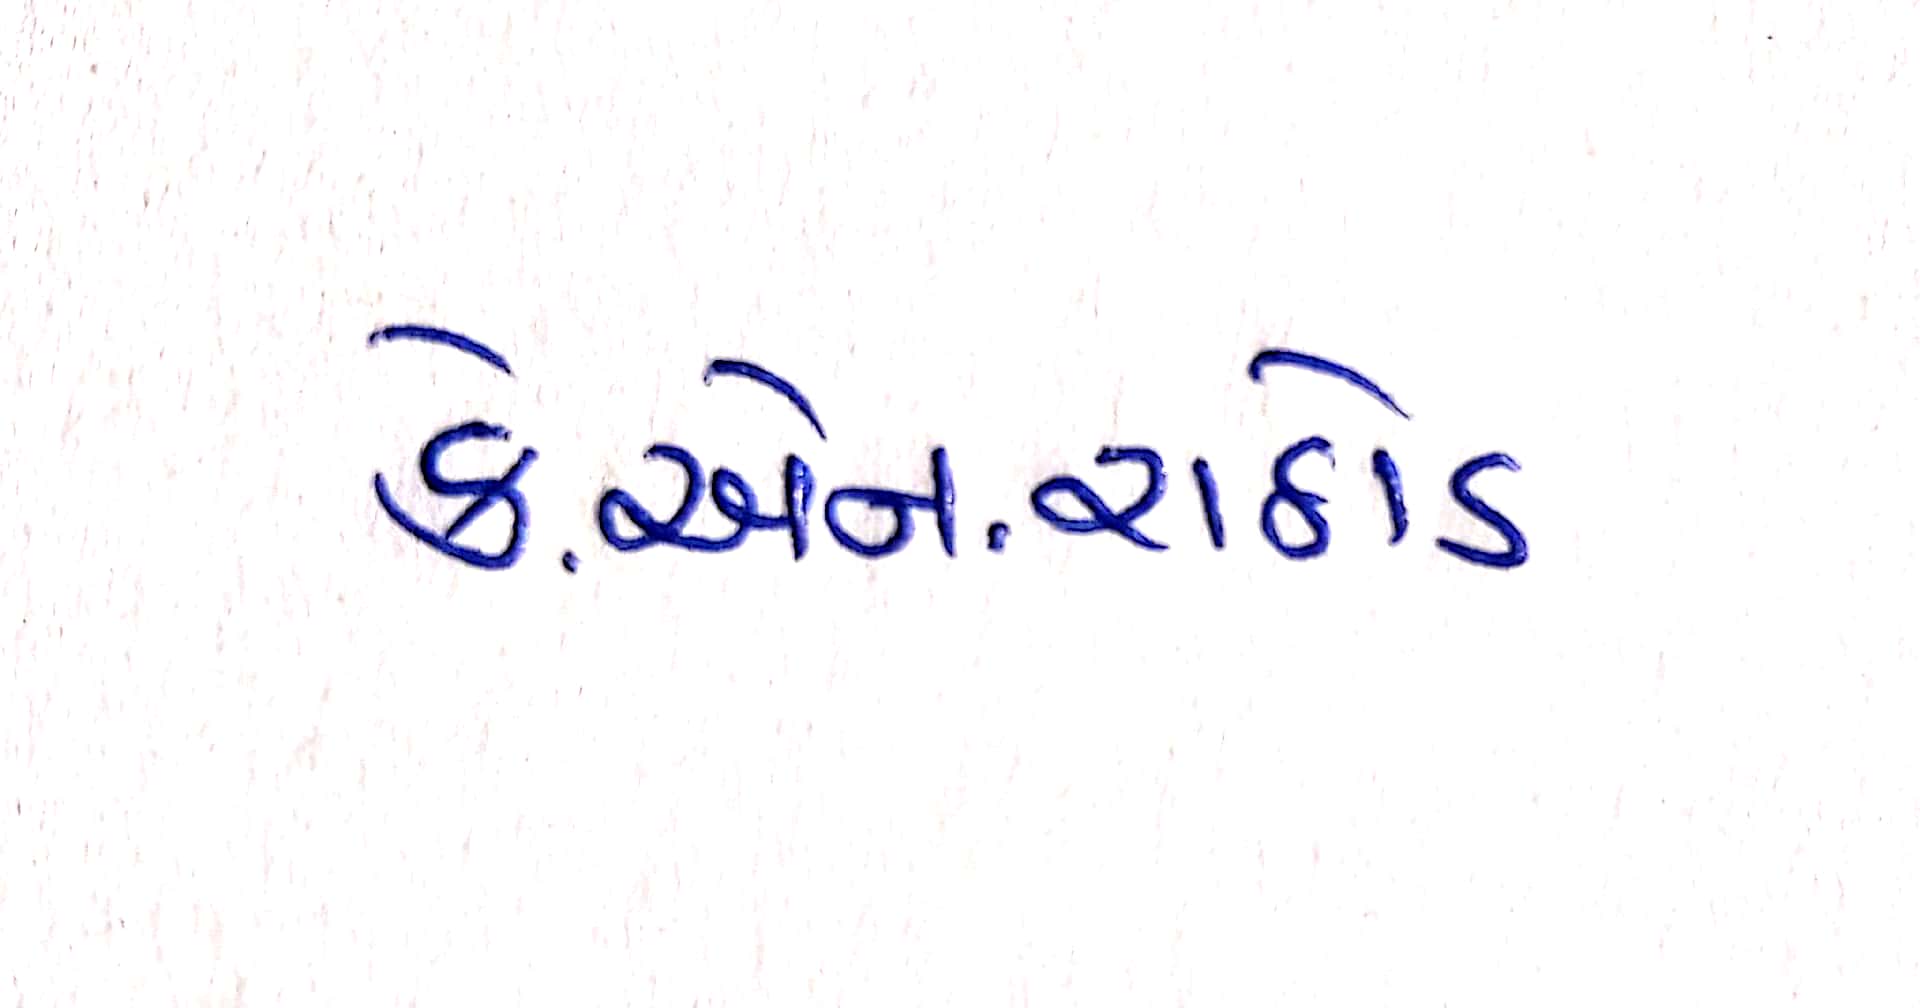 કે.એન.રાઠોડ